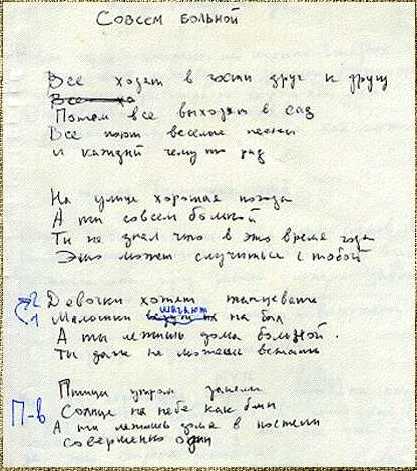 Совсем больной
Все ходят в гости друг к другу
Все хо
Потом все выходят в сад
Все поют веселые песни
и каждый чему то рад
На улице хорошая погода
А ты совсем больной
Ты не знал что в это время года
Это может случиться с тобой
2 Девочки хотят танцевать
шагают
1 Малышки на бал
А ты лежишь дома больной.
Ты даже не можешь встать
Птицы утром запели
П-в Солнце на небе как блин
А ты лежишь дома в постели
совершенно один